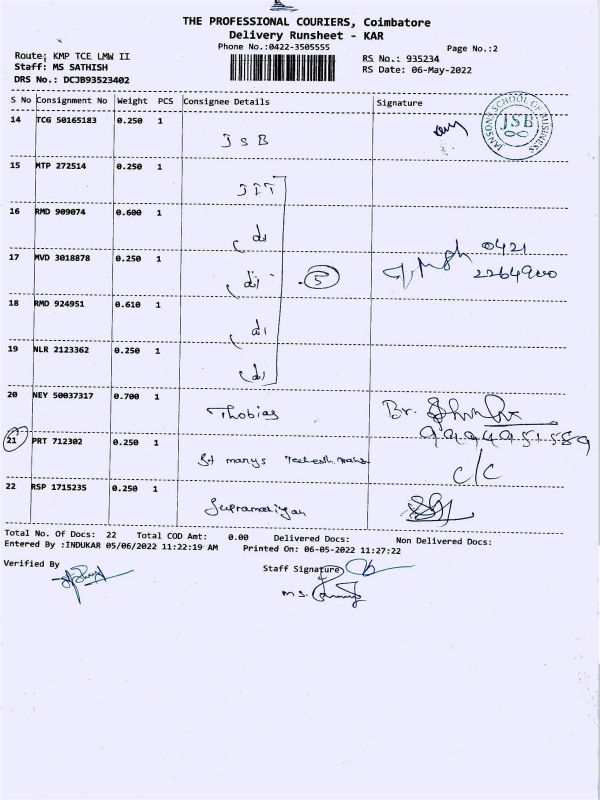 THE PROFESSIONAL COURIERS, Coimbatore
Delivery Runsheet - KAR
Phone No.:0422-3505555
Page No.:2
Route: KMP TCE LMW II
Staff: MS SATHISH
DRS No.: DCJB93523402
RS No.: 935234
RS Date: 06-May-2022
S No Consignment No Weight PCS Consignee Details Signature
14 TCG 50165183 0.250 1 JSB
JANSONS SCHOOL OF BUSINESS JSB
15 MTP 272514 0.250 1 JIT
16 RMD 909074 0.600 1
17 MVD 3018878 0.250 1 5 0421
2264900
18 RMD 924951 0.610 1
19 NLR 2123362 0.250 1
20 NEY 50037317 0.700 1 Thobias Br.
9994951589
21 PRT 712302 0.250 1 St marys c/c
22 RSP 1715235 0.250 1
Total No. Of Docs: 22 Total COD Amt: 0.00 Delivered Docs: Non Delivered Docs:
Entered By :INDUKAR 05/06/2022 11:22:19 AM Printed On: 06-05-2022 11:27:22
Verified By Staff Signature
M S.